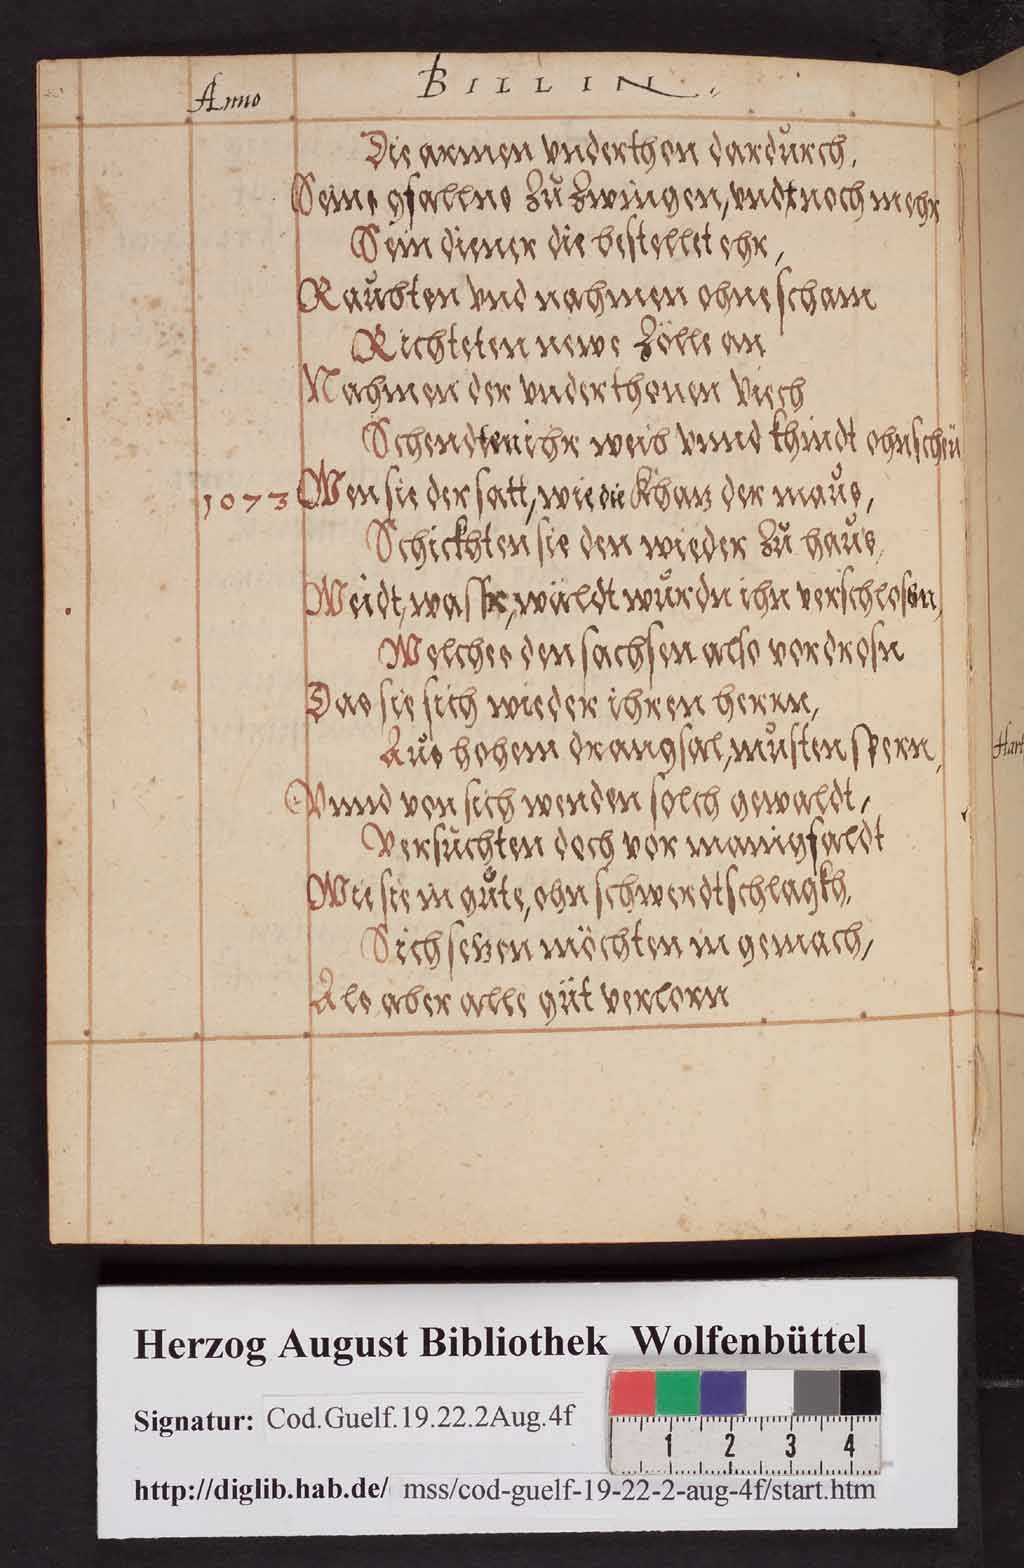 Anno
BILLIN.
Die armen vnderthon dardurch,
Seins gfallns zu zwingen, vndt noch mehr
Sein diener die bestellet ehr,
Raubten vnd nahmen ohne scham
Richteten newe Zölle an
Nahmen der vnderthonen Viech
Schendten ihr weib vnnd khindt ohn scheü
1073 Wen sie der satt, wie die Khaz der maus,
Schickhten sie den wieder zu haus,
Weidt, wassr, wäldt wurdn ihn verschlosen,
Welches den sachsen also verdrosn
Das sie sich wieder ihren herrn,
Aus hohem drangsal, musten sperrn,
Vnnd von sich wenden solch gewaldt,
Versuchten doch vor manigfaldt
Wie sie in gute, ohn schwerdtschlagkh,
Sich sezen möchten in gemach,
Als aber alle güt verlorn
Hart
Herzog August Bibliothek Wolfenbüttel
Signatur: Cod.Guelf.19.22.2Aug.4f
1 2 3 4
http://diglib.hab.de/ mss/cod-guelf-19-22-2-aug-4f/start.htm